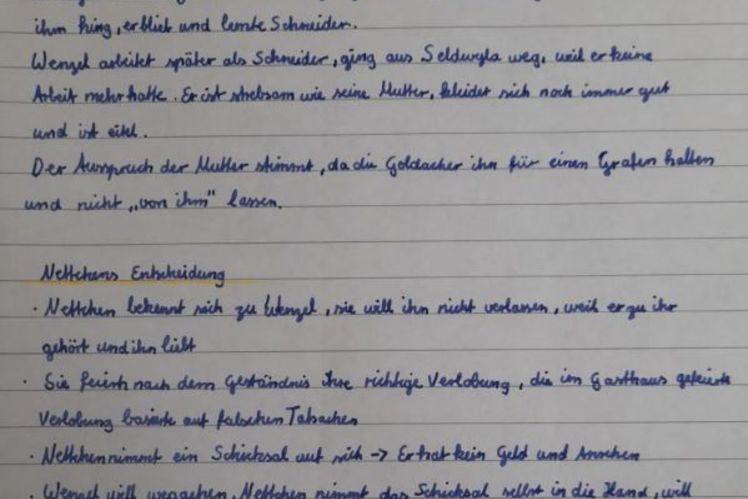 ihm hing, er blieb und lernte Schneider.
Wenzel arbeitet später als Schneider, ging aus Seldwyla weg, weil er keine
Arbeit mehr hatte. Er ist strebsam wie seine Mutter, kleidet sich noch immer gut
und ist eitel.
Der Ausspruch der Mutter stimmt, da die Goldacher ihn für einen Grafen halten
und nicht „von ihm" lassen.
Nettchens Entscheidung
· Nettchen bekennt sich zu Wenzel, sie will ihn nicht verlassen, weil er zu ihr
gehört und ihn liebt
· Sie feiern nach dem Geständnis ihre richtige Verlobung, die im Gasthaus gefeierte
Verlobung basierte auf falschen Tatsachen
· Nettchen nimmt ein Schicksal auf sich -> Er hat kein Geld und Ansehen
· Wenzel will weggehen, Nettchen nimmt das Schicksal selbst in die Hand, will